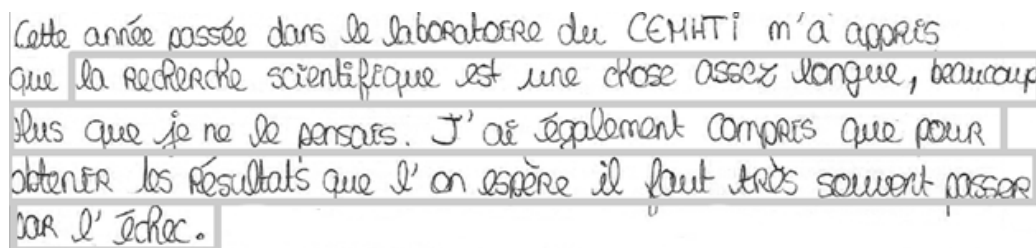 Cette année passée dans le laboratoire du CEMHTI m'a appris
que la recherche scientifique est une chose assez longue, beaucoup
plus que je ne le pensais. J'ai également compris que pour
obtenir les résultats que l'on espère il faut très souvent passer
par l'échec.